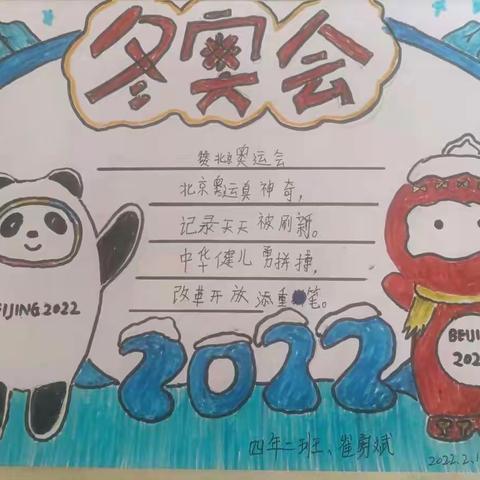 冬奥会
赞北京奥运会
北京奥运真神奇,
记录天天被刷新。
中华健儿勇拼搏,
改革开放添重笔。
BEIJING 2022
BEIJI
202
2022
四年二班、崔勇斌
2022.2.1